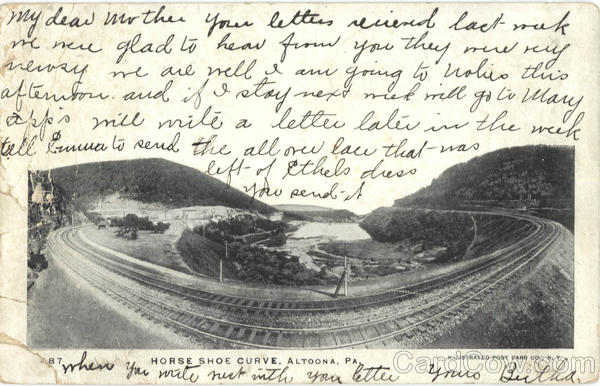 My dear Mother Your letters received last week
we were glad to hear from you they were very
newsy we are well I am going to Nolies this
afternoon. and if I stay next week will go to Mary
app's will write a letter later in the week
tell Emma to send the all over lace that was
left of Ethels dress
You send it
87 HORSE SHOE CURVE, ALTOONA, PA.
ILLUSTRATED POST CARD CO., N. Y.
when you write next with your letter Yours
CardCow.com